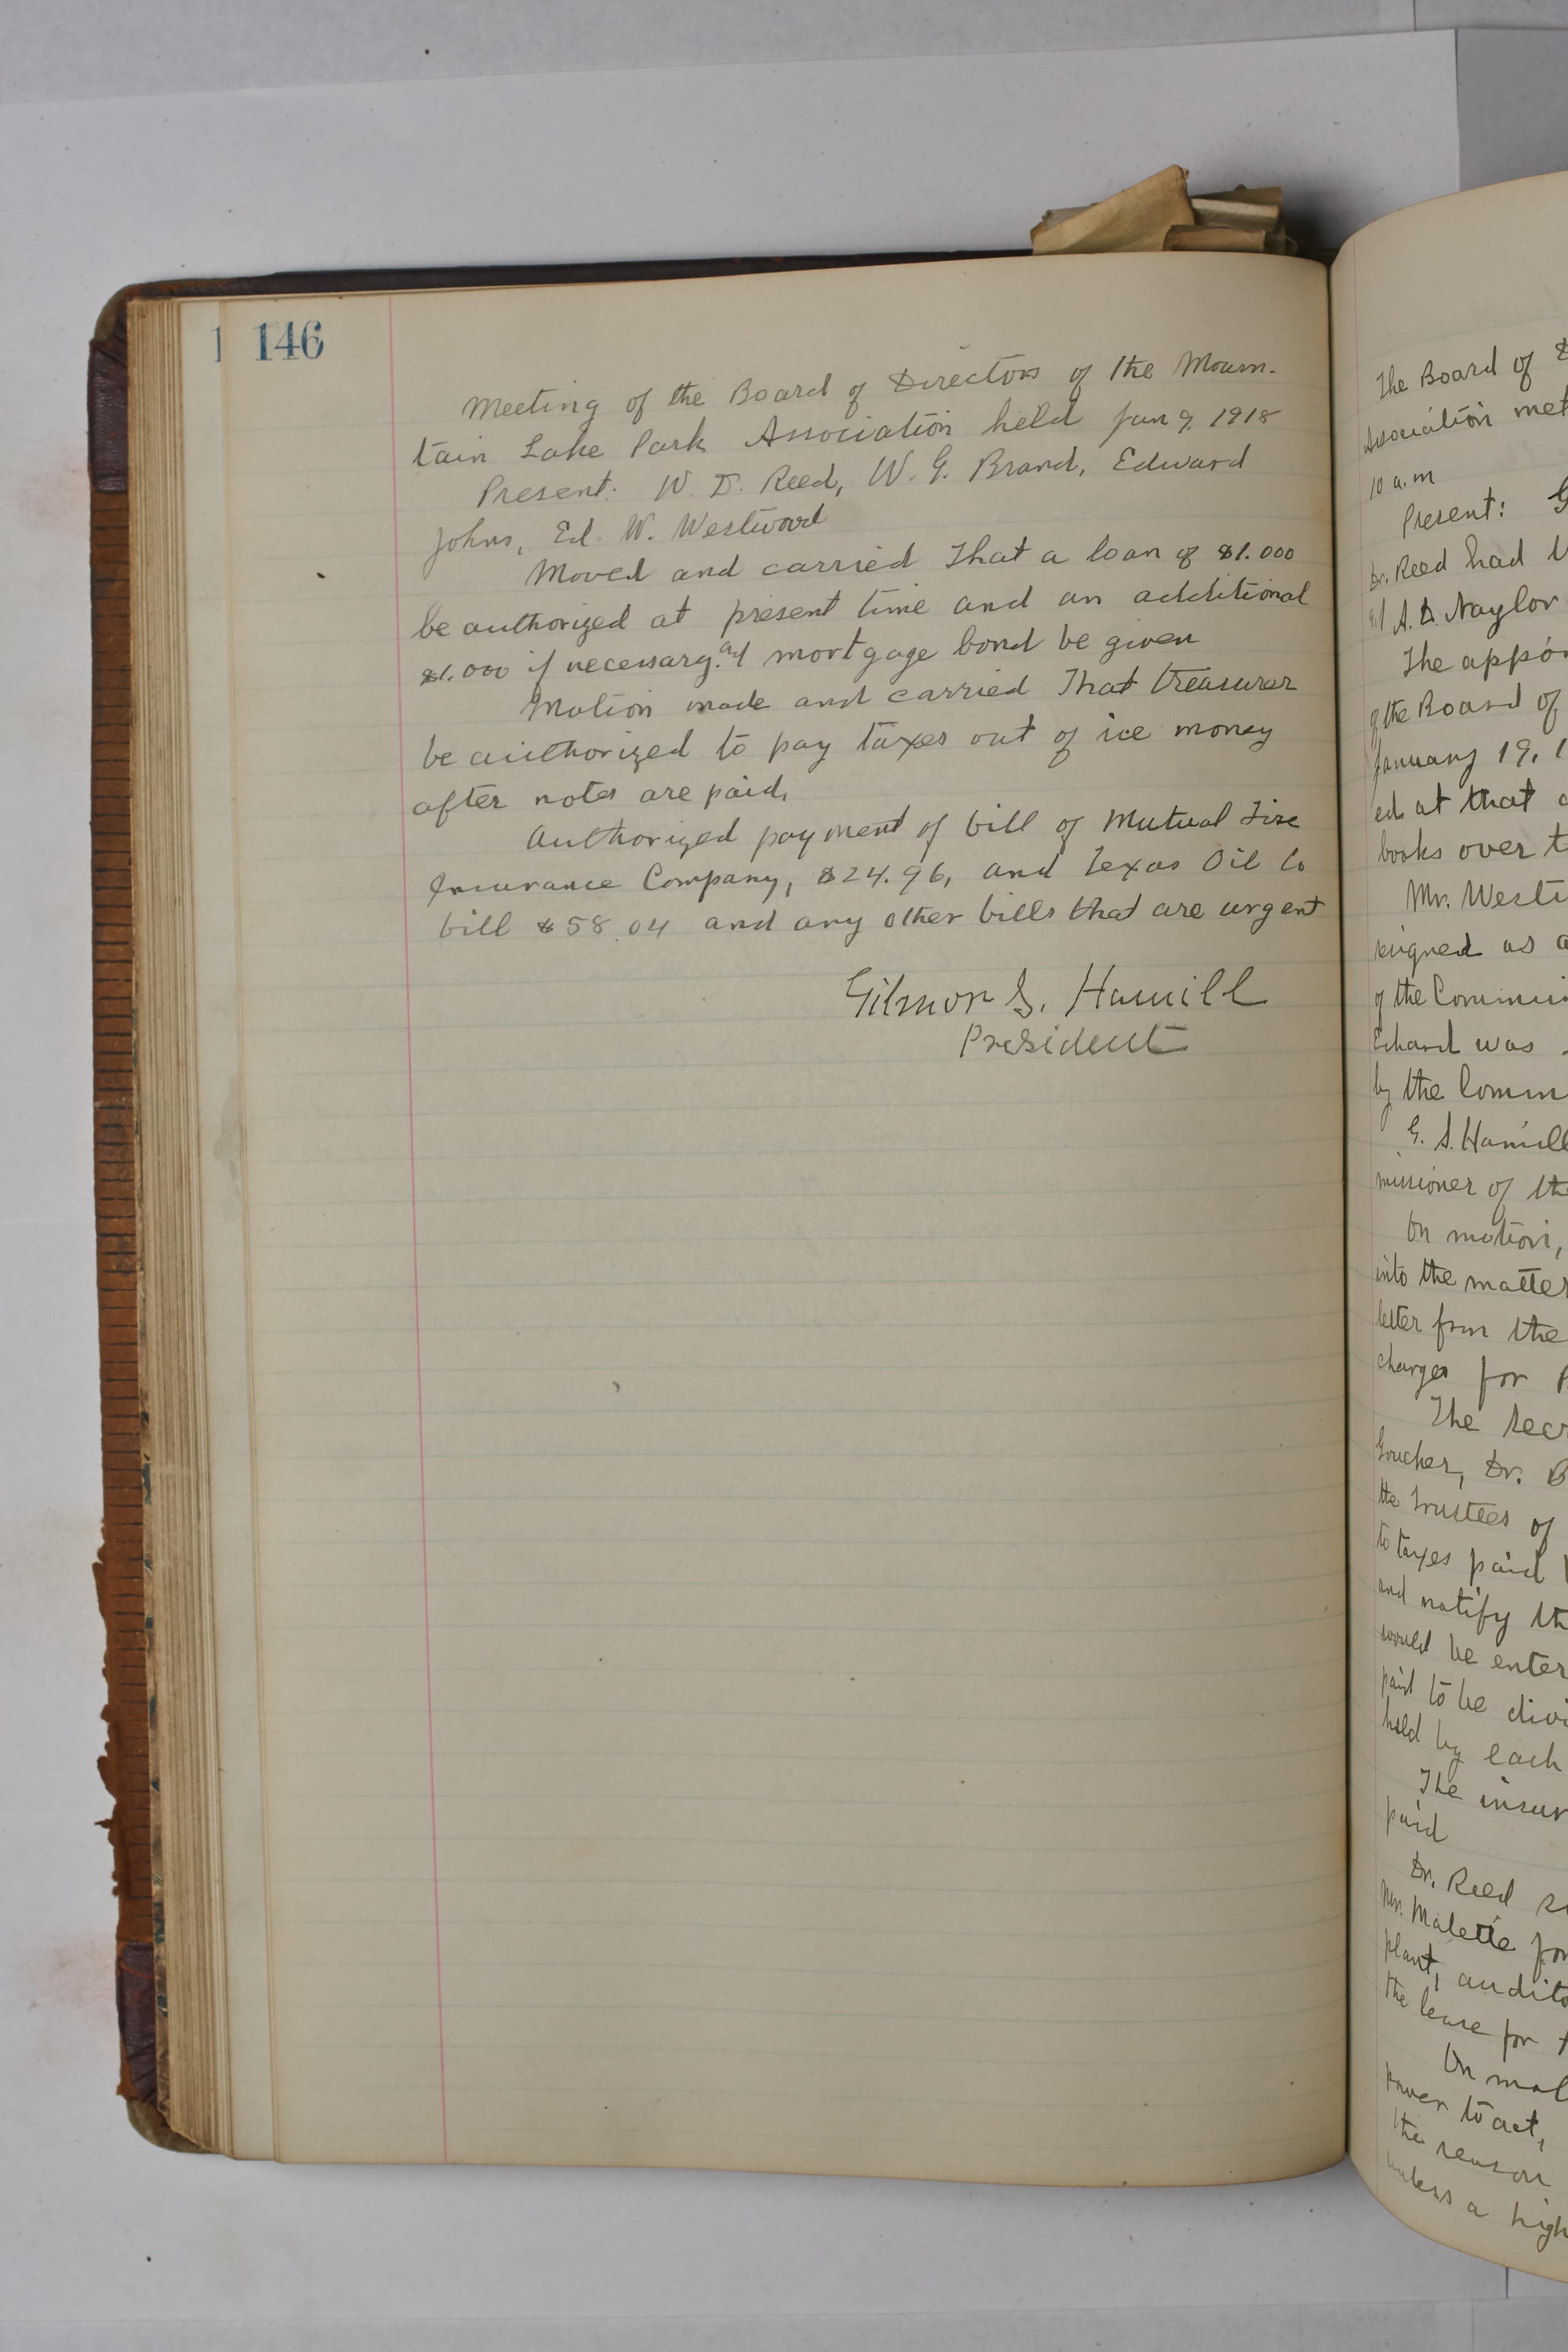 1 146
Meeting of the Board of Directors of the Moun-
tain Lake Park Association held Jan 9, 1918
Present: W. D. Reed, W. G. Brand, Edward
Johns, Ed. W. Westwood
Moved and carried That a loan of $1.000
be authorized at present time and an additional
$1.000 if necessary. and mortgage bond be given
Motion made and carried That treasurer
be authorized to pay taxes out of ice money
after notes are paid.
Authorized payment of bill of Mutual Fire
Insurance Company, $24.96, and Texas Oil Co
bill $58.04 and any other bills that are urgent
Gilmor S. Hamill
President
The Board of
Association met
10 a.m
Present: G
Dr. Reed had
A. D. Naylor
The appoi
of the Board of
January 19, 1
ed at that
books over t
Mr. Westw
signed as a
of the Commis
Echard was
by the Comm
G. S. Hamill
missioner of th
On motion,
into the matter
letter from the
charges for
The Secr
Goucher, Dr. B
the Trustees of
to taxes paid
and notify th
would be enter
paid to be divi
held by each
The insur
paid
Dr. Reed
Mr. Maletie for
plant, audito
the lease for
On mot
power to act,
the reason
unless a high